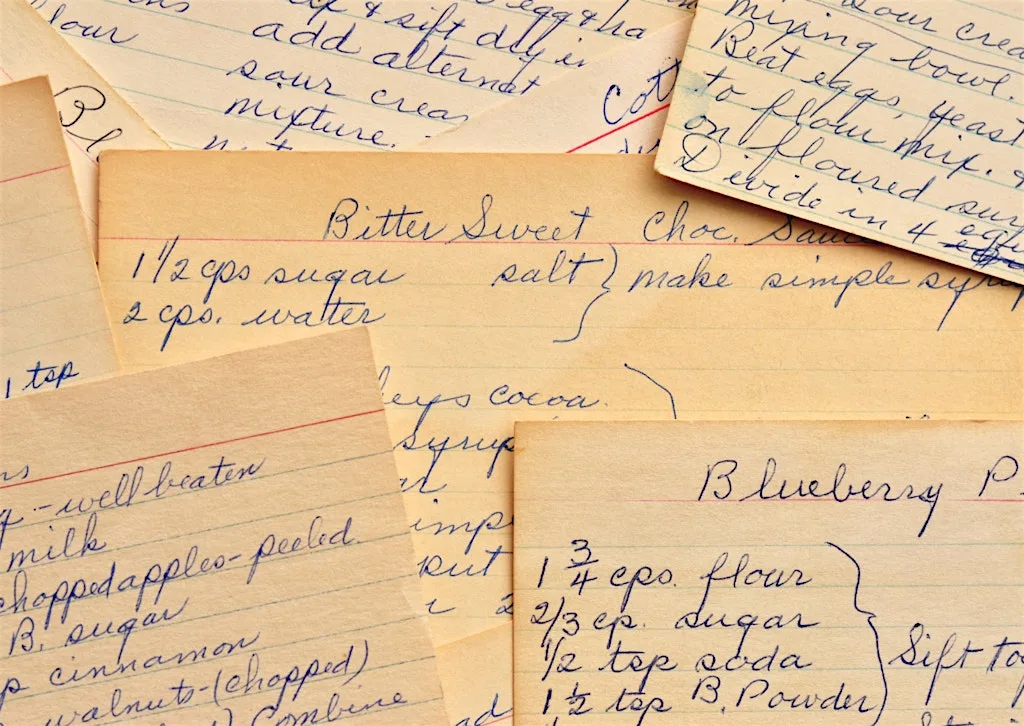 & sift dry in
add alternat
sour crea
mixture.
flour
egg & ha
Cott
sour crea
mixing bowl.
Beat eggs, yeast
to flour mix. &
on floured sur
Divide in 4
Bl
1 tsp
Bitter Sweet Choc. Sauce
1 1/2 cps sugar salt } make simple syru
2 cps. water
leys cocoa
syrup
imp
put
2
ad
- well beaten
milk
chopped apples - peeled.
B. sugar
cinnamon
walnuts - (chopped)
Combine
Blueberry P
1 3/4 cps. flour
2/3 cp. sugar
1/2 tsp soda
1 1/2 tsp B. Powder } Sift to